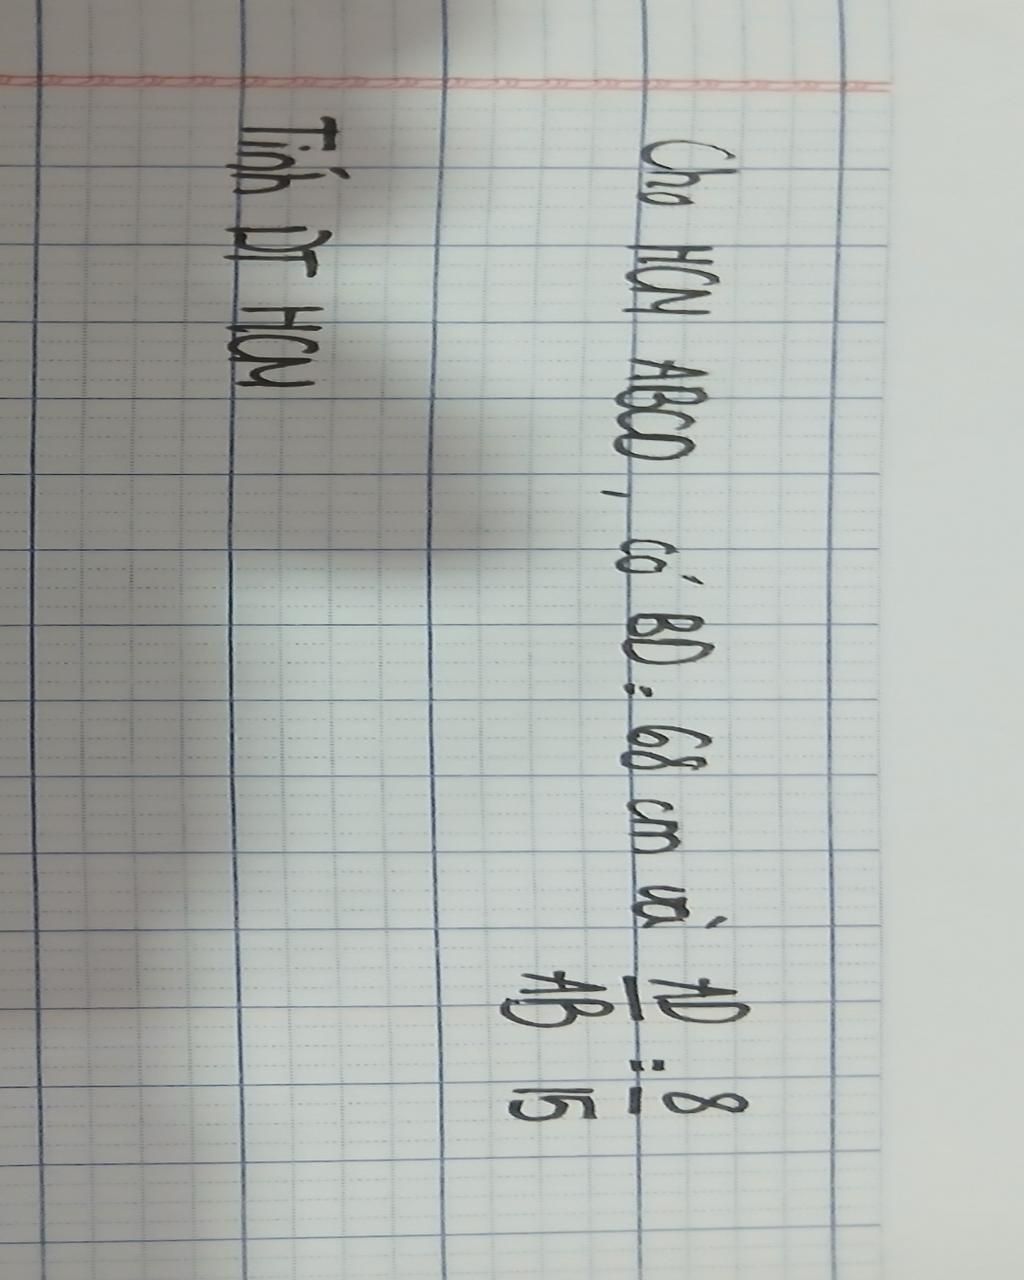 Cho HCN ABCD, có BD = 68 cm và AD/AB = 8/15
Tính DT HCN